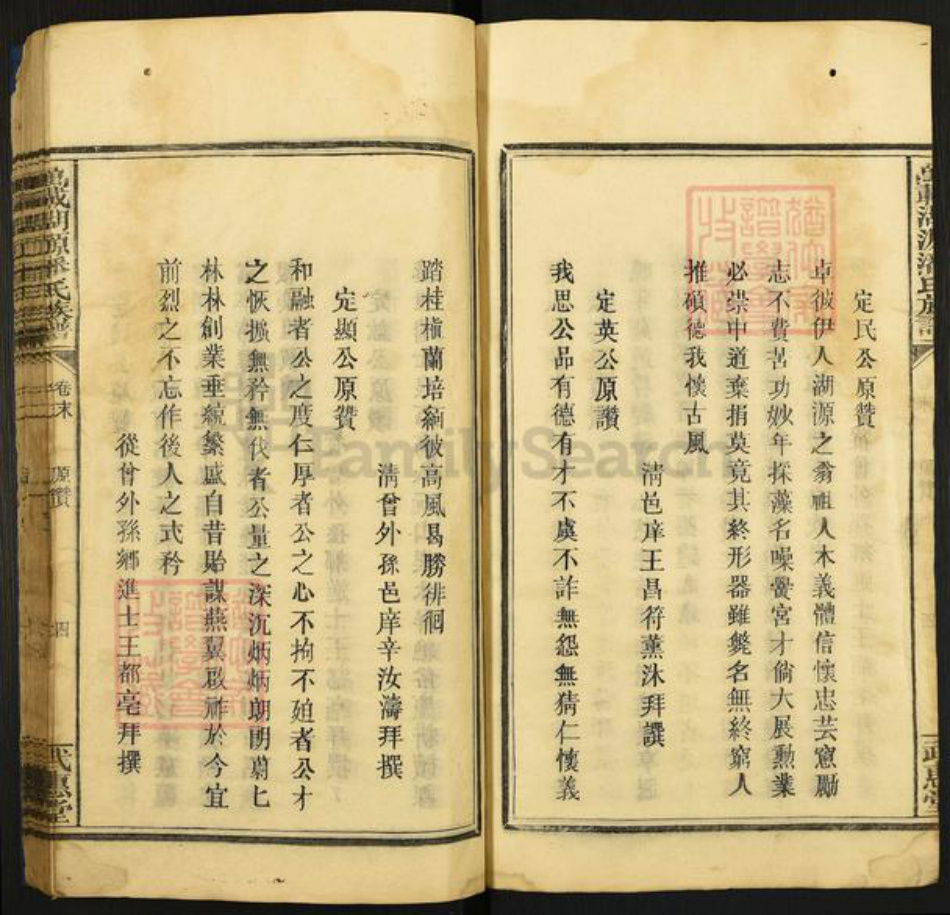 定民公原贊
卓彼伊人湖源之翁祖人本義體信懷忠芸窻勵
志不費苦功妙年採藻名噪黌宮才倘大展勲業
必崇中道棄捐莫竟其終形器雖斃名無終窮人
推碩德我懷古風
清邑庠王昌符薰沐拜譔
定英公原讚
我思公品有德有才不虞不詐無怨無猜仁懷義
踏桂植蘭培緬彼高風曷勝徘徊
清曾外孫邑庠辛汝濤拜撰
定顯公原贊
和融者公之度仁厚者公之心不拘不廹者公才
之恢擴無矜無伐者公量之深沉炳炳朗朗蔚七
林林創業垂統繁盛自昔貽謀燕翼啟祚於今宜
前烈之不忘作後人之式矜
從曾外孫鄉進士王都亳拜撰
萬載湖源潘氏族譜
卷末
原讚
四
武惠堂
萬載湖源潘氏族譜
武惠堂
FamilySearch